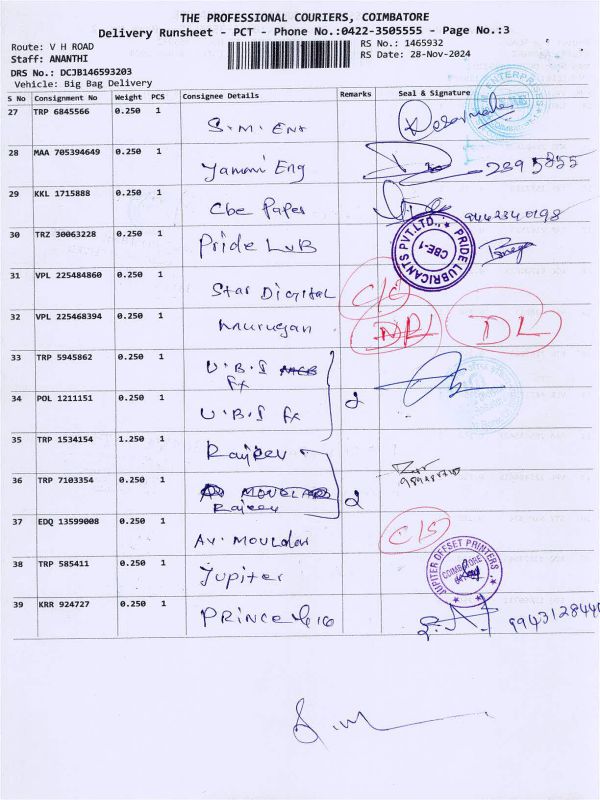 THE PROFESSIONAL COURIERS, COIMBATORE
Delivery Runsheet - PCT - Phone No.:0422-3505555 - Page No.:3
Route: V H ROAD
RS No.: 1465932
Staff: ANANTHI
RS Date: 28-Nov-2024
DRS No.: DCJB146593203
Vehicle: Big Bag Delivery
S No Consignment No Weight PCS Consignee Details Remarks Seal & Signature
27 TRP 6845566 0.250 1 S.M. Ent
28 MAA 705394649 0.250 1 Yamuni Eng
29 KKL 1715888 0.250 1 Cbe Paper
30 TRZ 30063228 0.250 1 Pride LUB PRIDE LUBRICANTS PVT.LTD., CBE-1
31 VPL 225484860 0.250 1 Star Digital
32 VPL 225468394 0.250 1 Murugan DL
33 TRP 5945862 0.250 1 U.B.I
Fx
34 POL 1211151 0.250 1 U.B.I Fx 2
35 TRP 1534154 1.250 1 Rajeev
36 TRP 7103354 0.250 1 Rajeev 2
37 EDQ 13599008 0.250 1 AV. MOULder
38 TRP 585411 0.250 1 Jupiter JUPITER OFFSET PRINTERS, COIMBATORE
39 KRR 924727 0.250 1 PRINCE